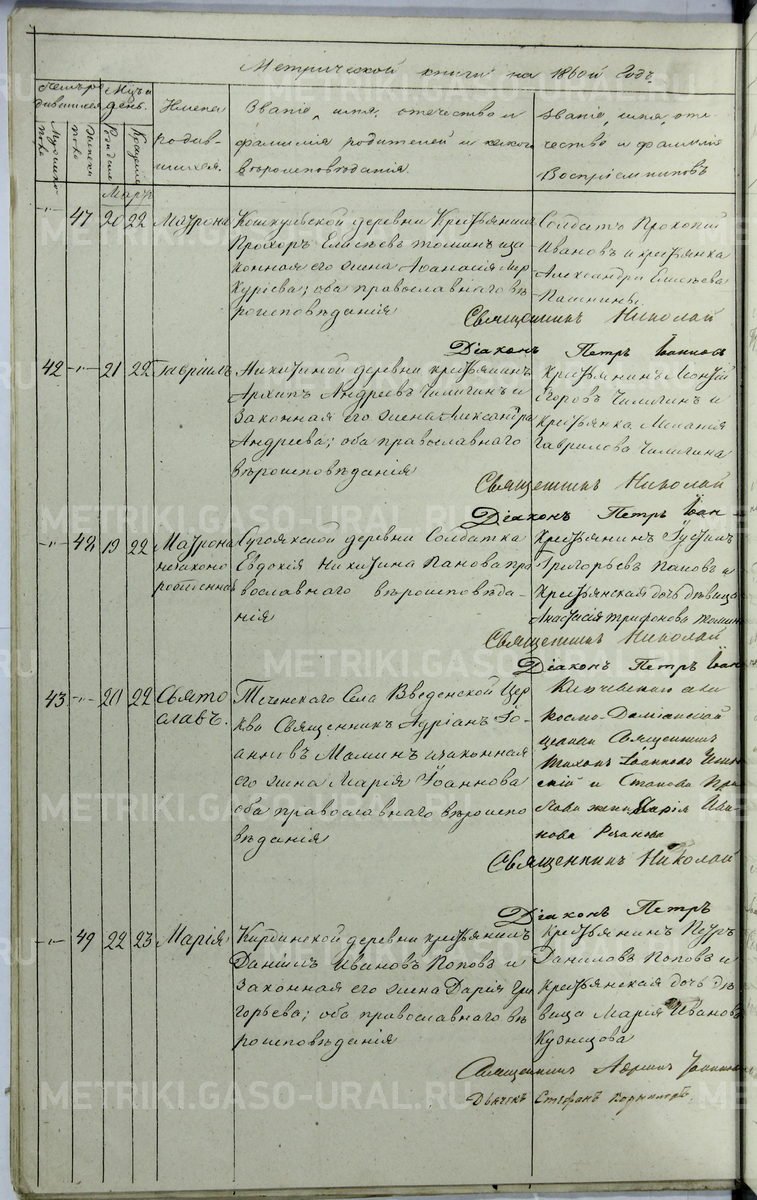 Метрической книги на 1860й годъ.
Званіе, имя, отечество и
фамилія родителей и какого
вѣроисповѣданія.
Званіе, имя, оте-
чество и фамилія
Воспріемниковъ
Имена
родив-
шихся.
Мартъ
47 20 22 Матрона
Прохоръ Елисѣевъ
конная его жена Аѳанасія Мер
куріева; оба православнаго вѣ
роисповѣданія
Солдатъ Прокопій
Ивановъ и крестьянка
Александра Елисѣева
Священникъ Николай
Діаконъ Петръ Іоаннов
42 21 22 Гавріилъ
Никитиной деревни крестьянинъ
Архипъ Андреевъ Чилигинъ и
Законная его жена Александра
Андреева; оба православнаго
вѣроисповѣданія
Крестьянинъ
Егоровъ Чилигинъ и
Крестьянка Меланія
Гаврилова Чилигина
Священникъ Николай
Діаконъ Петръ Іоан
48 19 22 Матрона
незаконо
рожденная
деревни Солдатка
Евдокія Никитина Панова пра
вославнаго вѣроисповѣда-
нія
Крестьянинъ Іустинъ
Григорьевъ Пановъ и
Крестьянская дочь дѣвица
Анастасія Трифонова
Священникъ Николай
Діаконъ Петръ Іоан
43 20 22 Свято
славъ.
Теченскаго Села Введенской Цер
кви Священникъ Адріанъ Іо-
анновъ Маминъ и законная
его жена Марія Іоаннова
оба православнаго вѣроиспо
вѣданія
Космо-Даміанской
церкви Священникъ
Тихонъ Іоанновъ
жена Марія Ива-
нова
Священникъ Николай
Діаконъ Петръ
49 22 23 Марія
деревни крестьянинъ
Даніилъ Ивановъ Поповъ и
Законная его жена Дарія Гри
горьева; оба православнаго вѣ
роисповѣданія
Крестьянинъ Петръ
Даниловъ Поповъ и
Крестьянская дочь дѣ
вица Марія Иванова
Кузнецова
Священникъ Адріанъ
Дьячекъ Стефанъ
METRIKI.GASO-URAL.RU